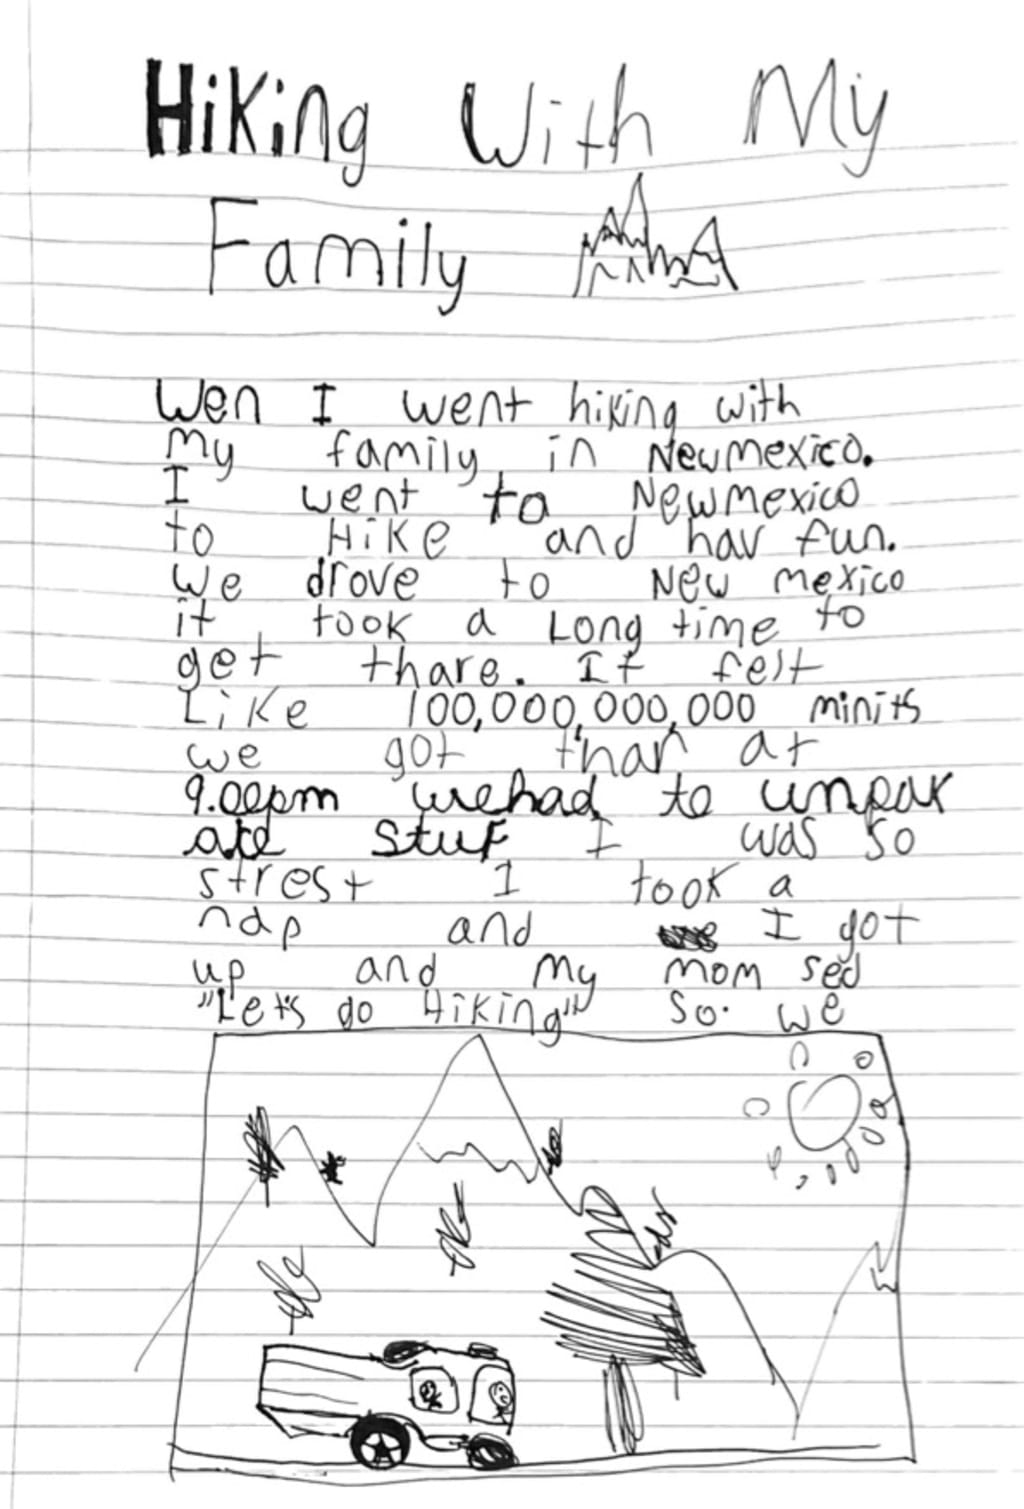 Hiking With My
Family
Wen I went hiking with
my family in Newmexico.
I went to Newmexico
to Hike and hav fun.
We drove to New mexico
it took a Long time to
get thare. It felt
Like 100,000,000,000 minits
we got thar at
9.00pm wehad to unpak
are stuf I was so
strest I took a
nap and I got
up and my mom sed
"Let's go Hiking" so. we